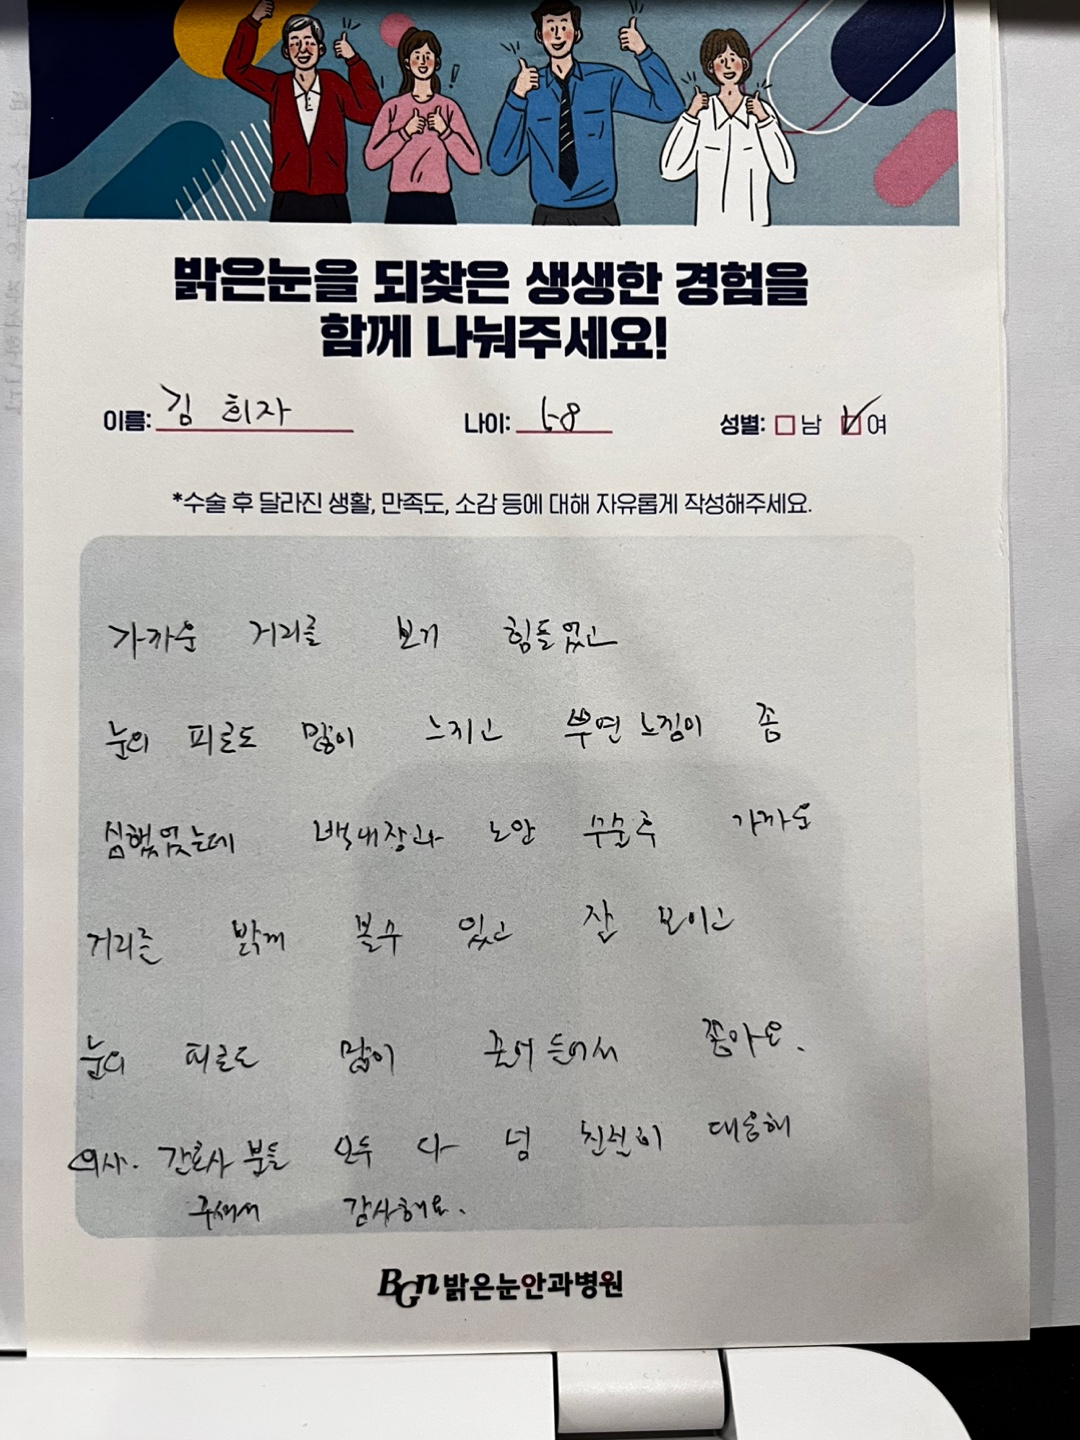 밝은눈을 되찾은 생생한 경험을
함께 나눠주세요!
이름: 김 희자 나이: 58 성별: 남 여
*수술 후 달라진 생활, 만족도, 소감 등에 대해 자유롭게 작성해주세요.
가까운 거리를 보기 힘들었고
눈의 피로도 많이 느끼고 뿌연 느낌이 좀
심했었는데 백내장과 노안 수술후 가까운
거리를 밝게 볼수 있고 잘 보이고
눈의 피로도 많이 줄어 들어서 좋아요.
의사. 간호사 분들 모두 다 넘 친절히 대응해
주셔서 감사해요.
BGn 밝은눈안과병원